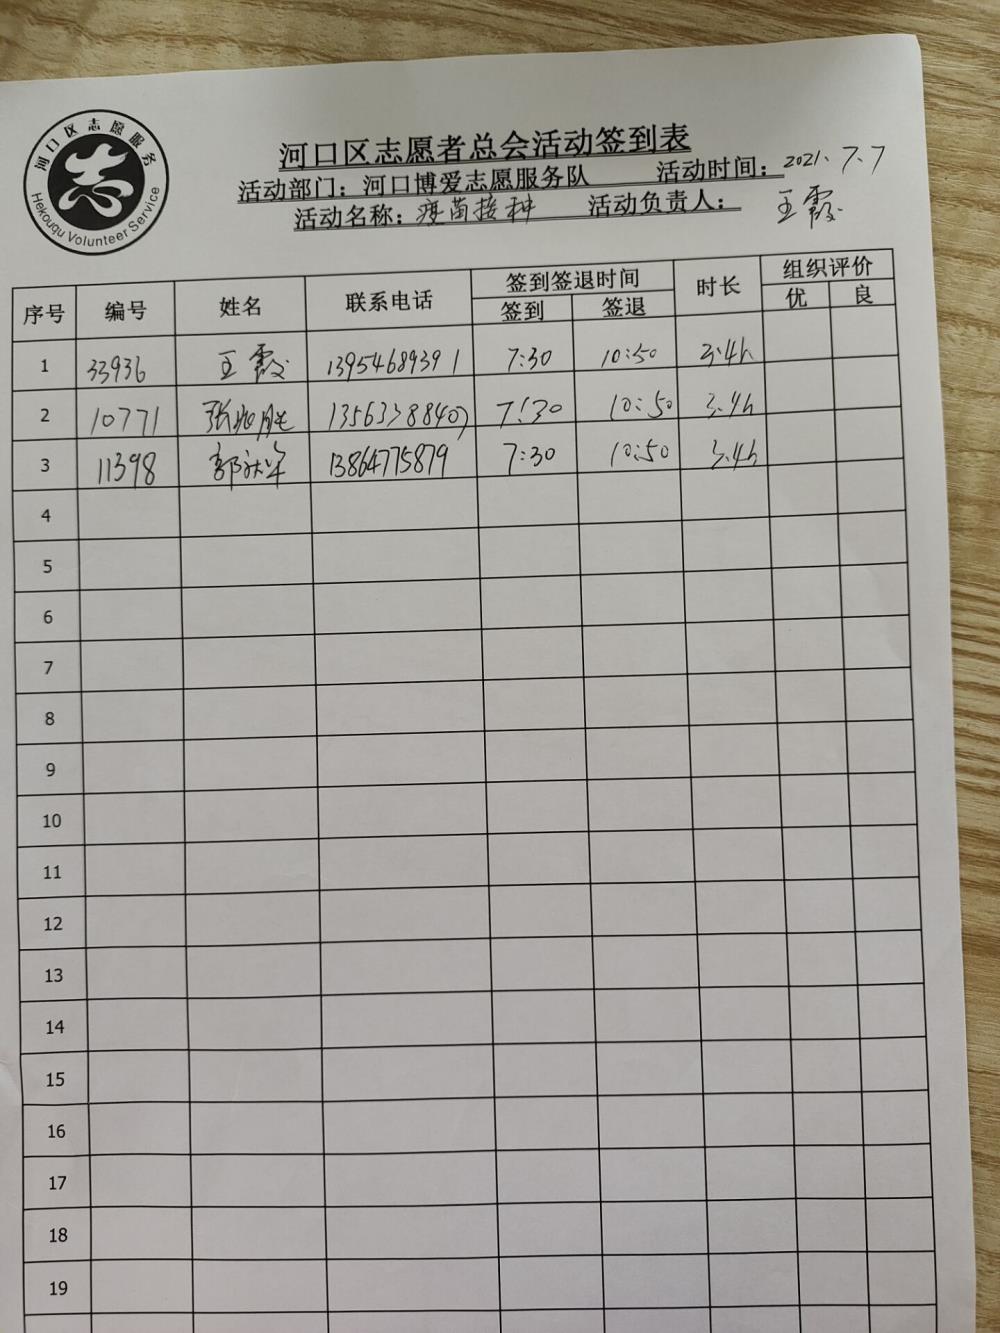 河口区志愿服务
Hekouqu Volunteer Service
河口区志愿者总会活动签到表
活动部门：河口博爱志愿服务队 活动时间：2021.7.7
活动名称：疫苗接种 活动负责人：王霞
序号 编号 姓名 联系电话 签到签退时间 时长 组织评价
签到 签退 优 良
1 33936 王霞 13954689391 7:30 10:50 3.4h
2 10771 张 13563388407 7:30 10:50 3.4h
3 11398 郭 13864775879 7:30 10:50 3.4h
4
5
6
7
8
9
10
11
12
13
14
15
16
17
18
19